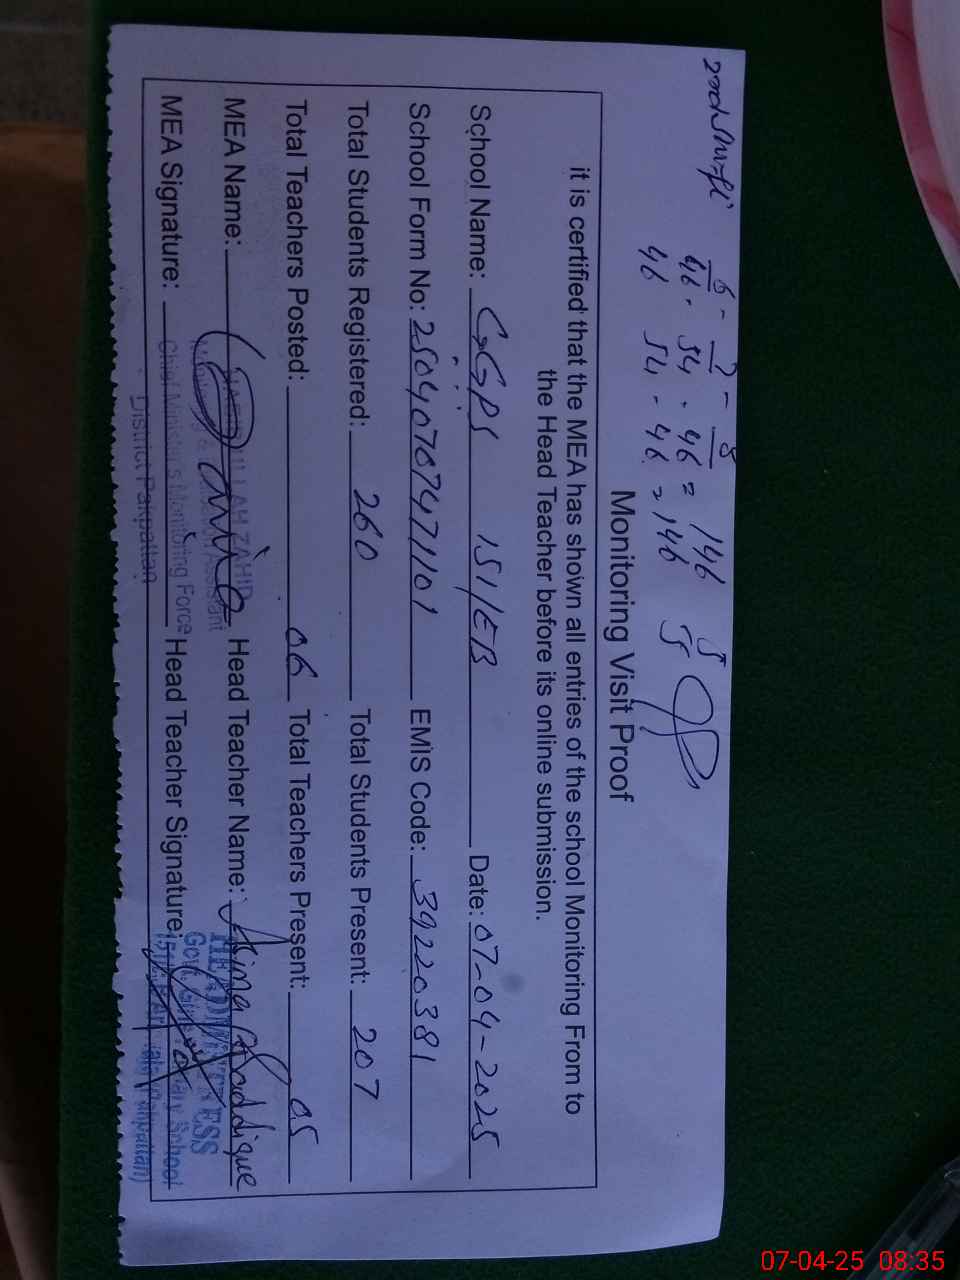 6 - 7 - 8
46 · 54 · 46 = 146 5
46 54 - 46 = 146 5
Monitoring Visit Proof
it is certified that the MEA has shown all entries of the school Monitoring From to
the Head Teacher before its online submission.
School Name: GGPS 151/EB Date: 07-04-2025
School Form No: 25040707471101 EMIS Code: 39220381
Total Students Registered: 260 Total Students Present: 207
Total Teachers Posted: 06 Total Teachers Present: 05
MEA Name: ZAHID Head Teacher Name: Saddique
MEA Signature: Chief Minister's Monitoring Force Head Teacher Signature:
District Pakpattan
HEADMISTRESS
Govt. School
07-04-25 08:35